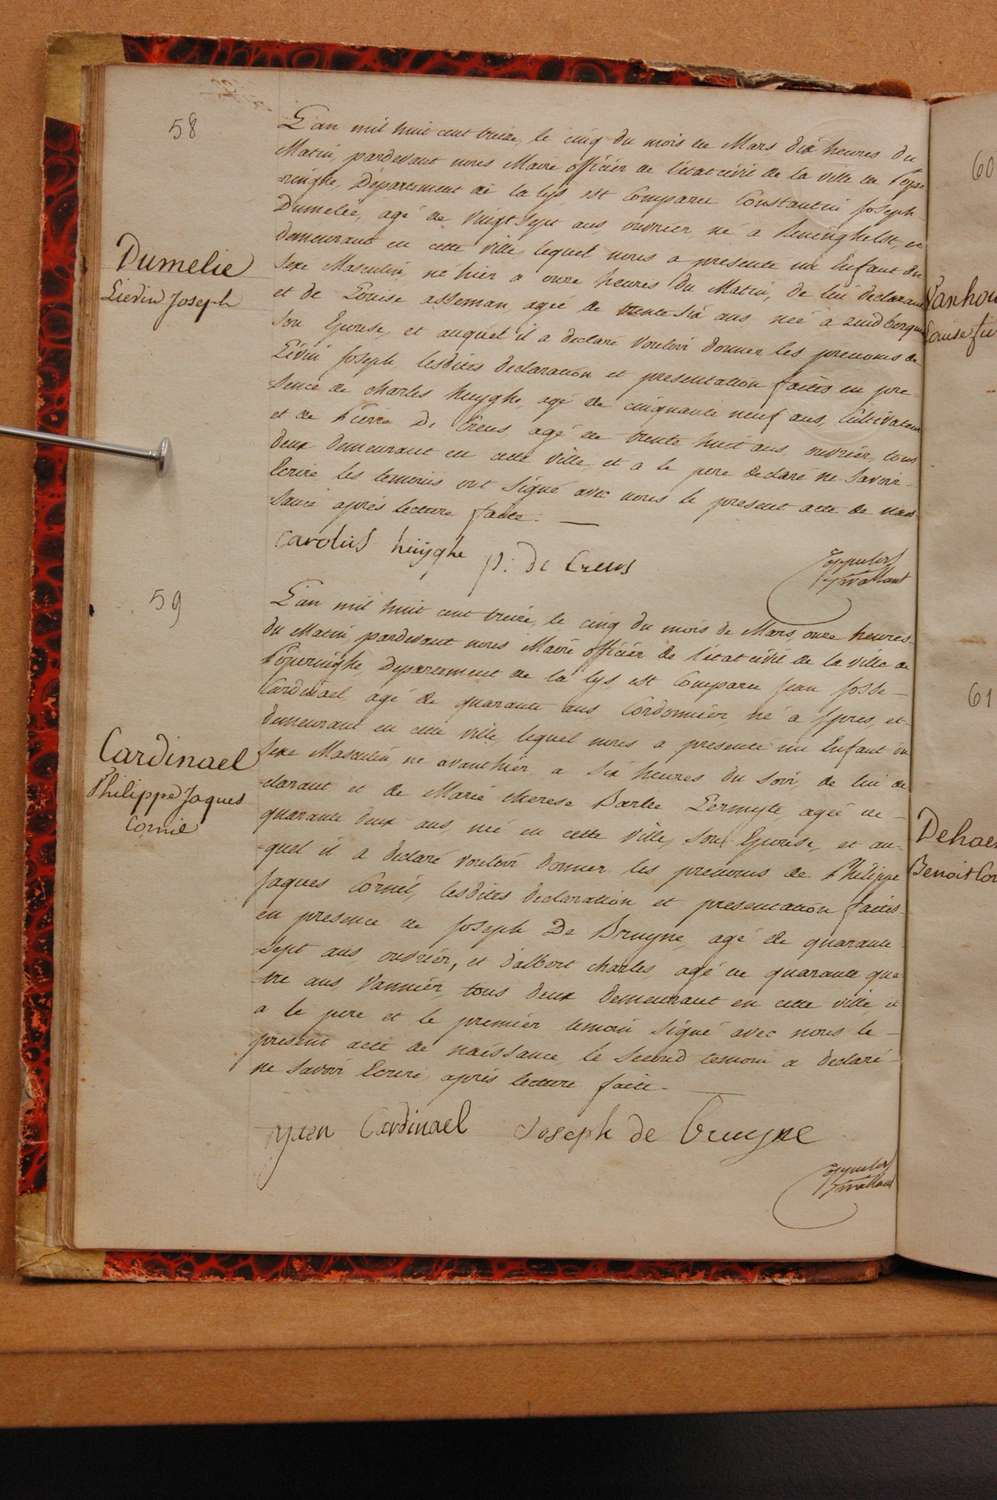 58
Dumelie
Lievin Joseph
L'an mil huit cent treize, le cinq du mois de Mars dix heures du
Matin, pardevant nous Maire officier de l'état civil de la ville de Pope-
ringhe, Département de la Lys, est Comparu Constantin Joseph
Dumelie, agé de vingt sept ans ouvrier né à Reninghelst, et
demeurant en cette ville, lequel nous a presenté un Enfant du
Sexe Masculin, né hier a onze heures du Matin, de lui declarant
et de Louise asseman, agée de trente six ans née à
Son Epouse, et auquel il a declaré vouloir donner les prenoms de
Livin Joseph, lesdites declaration et presentation faites en pre-
sence de Charles huyghe, agé de cinquante neuf ans, Cultivateur
et de Pierre De Creus agé de trente huit ans ouvrier, tous
deux demeurant en cette ville et a le pere declaré ne Savoir
Ecrire les temoins ont Signé avec nous le present acte de nais-
sance après lecture faite. —
Carolus huyghe p: de Creus
59
Cardinael
Philippe Jaques
Cornil
L'an mil huit cent treize, le cinq du mois de Mars, onze heures
du Matin, pardevant nous Maire officier de l'état civil de la ville de
Poperinghe, Departement de la Lys, est Comparu Jean Josse
Cardinael, agé de quarante ans Cordonnier, né à Ypres, et
demeurant en cette ville, lequel nous a presenté un Enfant du
Sexe Masculin né avanthier a six heures du Soir, de lui de
clarant et de Marie therese Barbe Lermyte agée de
quarante deux ans, née en cette Ville, Son Epouse, et au-
quel il a declaré vouloir donner les prenoms de Philippe
Jaques Cornil, lesdites declaration et presentation faites
en presence de Joseph De Bruyne, agé de quarante
sept ans ouvrier, et d'albert Charles agé de quarante qua
tre ans Vannier, tous deux demeurant en cette ville, et
a le pere et le premier temoin signé avec nous le
present acte de naissance le second temoin a declaré
ne savoir Ecrire, après lecture faite.
Cardinael Joseph de Bruyne
60
61
Dehae
Benoit Cor